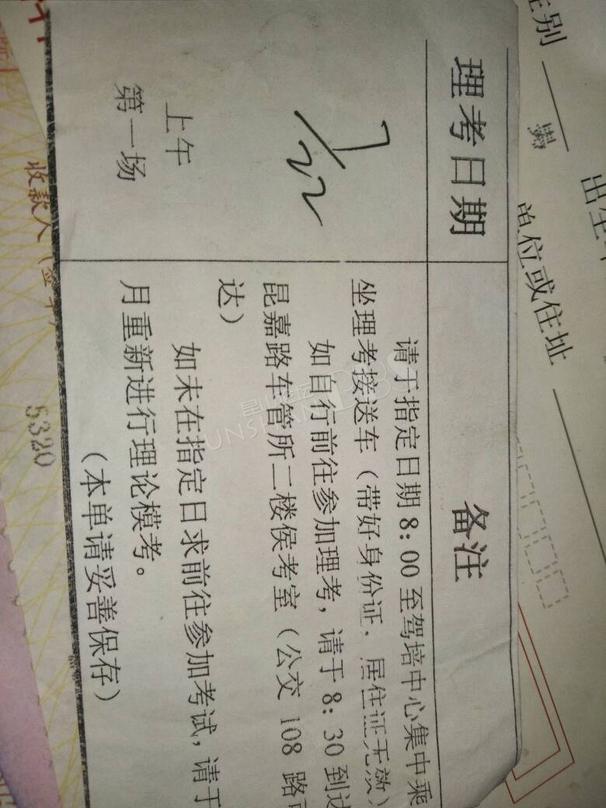 理考日期
7/22
上午
第一场
备注
请于指定日期8:00至驾培中心集中乘
坐理考接送车（带好身份证、居住证无效）
如自行前往参加理考，请于8:30到达
昆嘉路车管所二楼侯考室（公交108路可
达）
如未在指定日求前往参加考试，请于
月重新进行理论模考。
（本单请妥善保存）
性别
男
单位或住址
收款人（签
5320